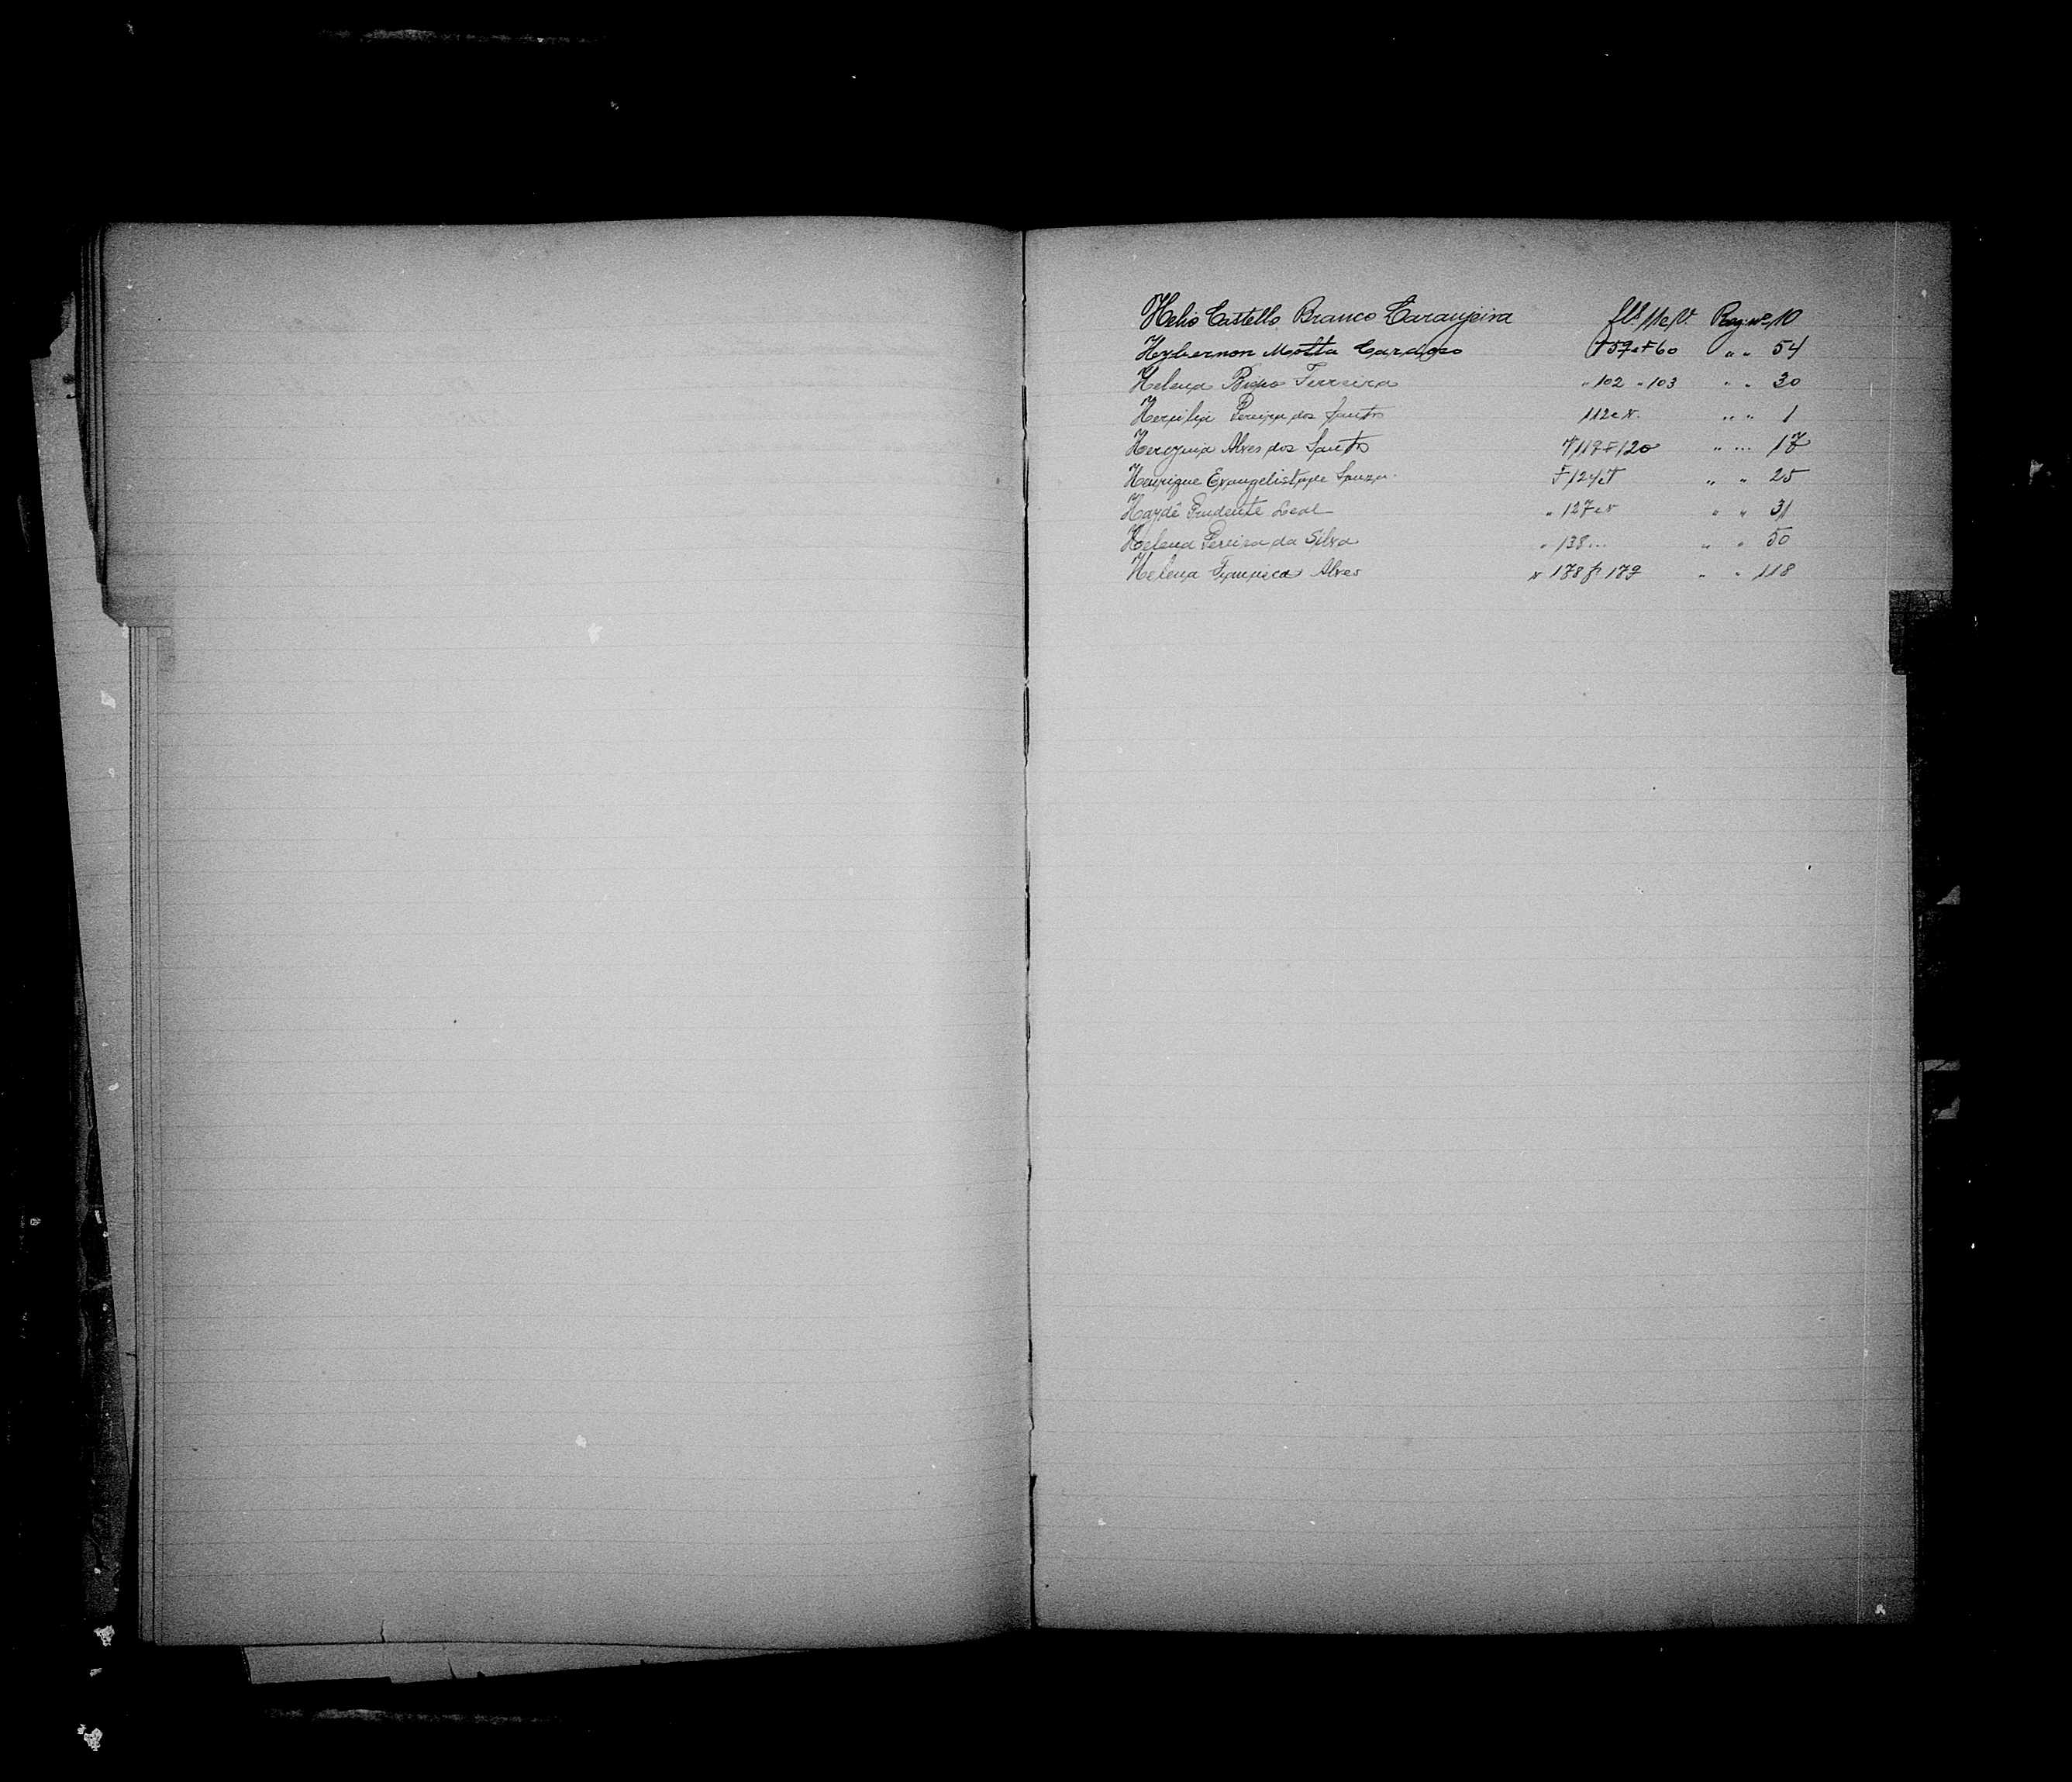 Helio Castello Branco Laranjeira fls. 11 e V. Reg. nº 10
Hybernon Motta Cardoso F 59 e F 60 " " 54
Helena Ferreira " 102 " 103 " " 30
Hercilia Pereira dos Santos 112 e v. " " 1
Alves dos Santos 119 F 120 " " 17
Henrique Evangelista de Souza F 124 e v " " 25
Haydê Prudente Leal " 127 e v " " 31
Helena Pereira da Silva " 138 " " " 50
Helena Francisca Alves v 178 f 179 " " 118